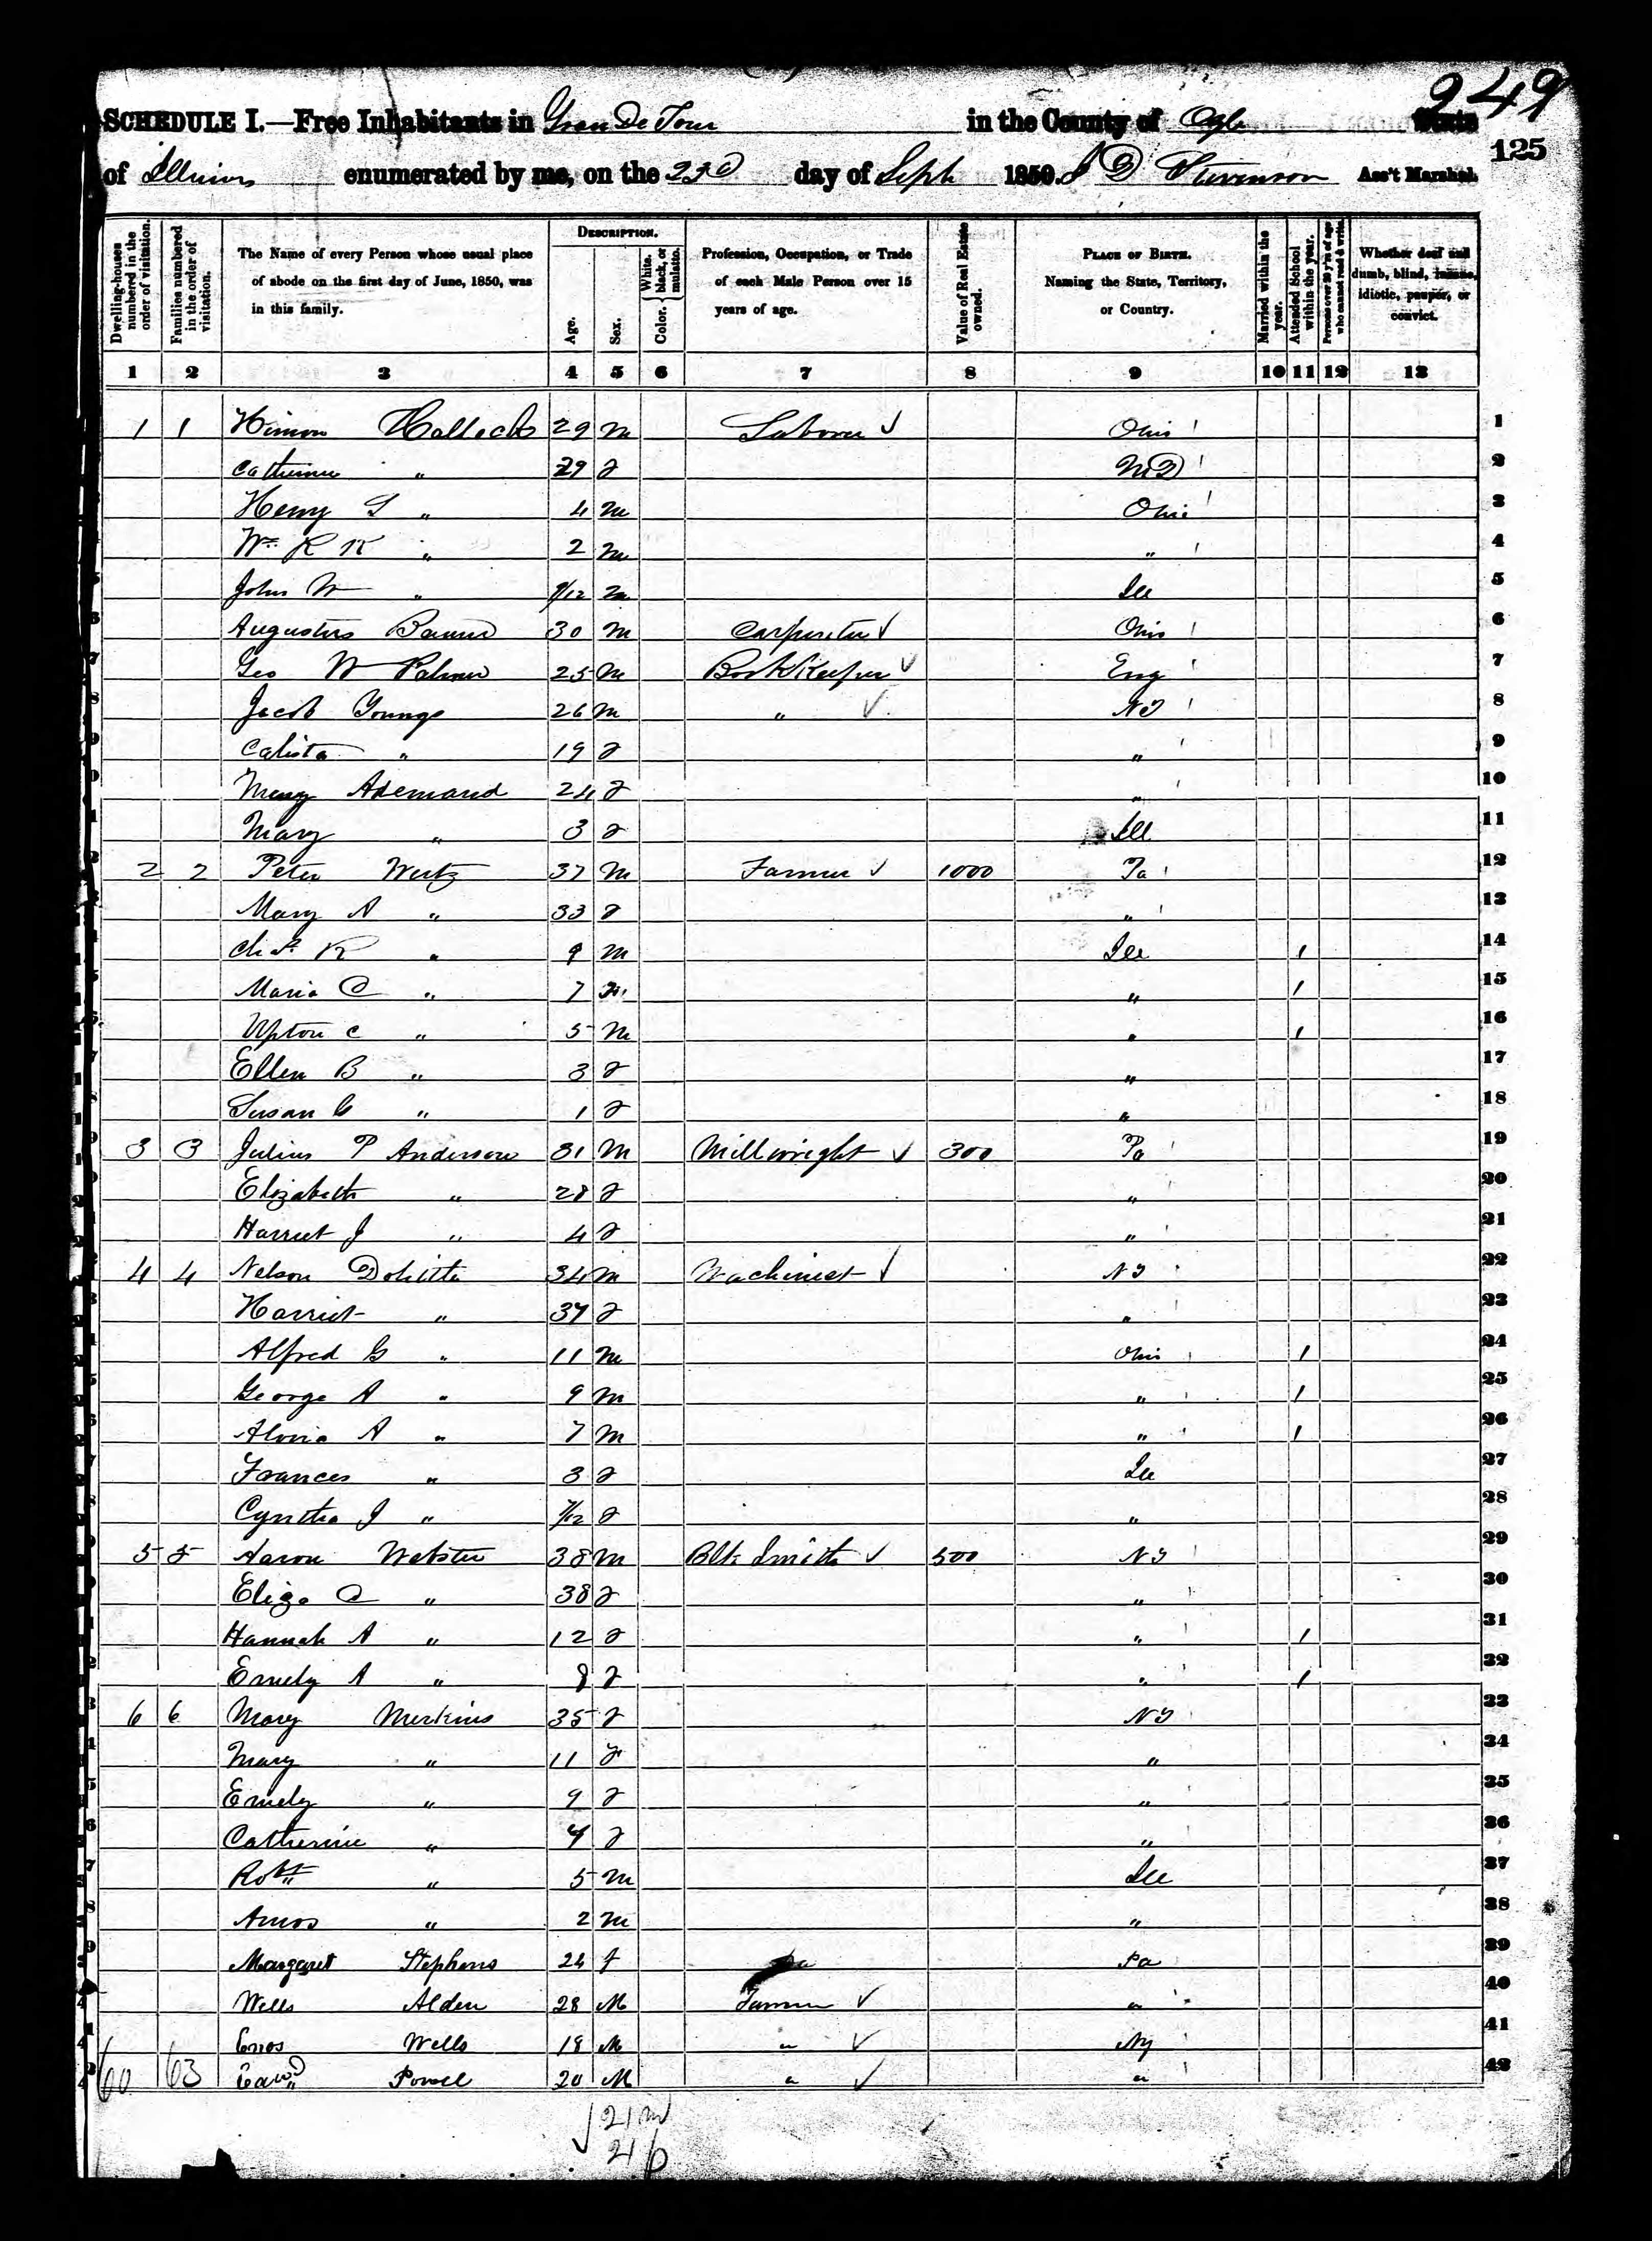 249
SCHEDULE I.—Free Inhabitants in Gran De Tour in the County of Ogle State
125
of Illinois enumerated by me, on the 23d day of Sept 1850. J D Stevenson Ass't Marshal.
Dwelling-houses numbered in the order of visitation.
Families numbered in the order of visitation.
The Name of every Person whose usual place of abode on the first day of June, 1850, was in this family.
DESCRIPTION.
Age.
Sex.
Color. { White, black, or mulatto.
Profession, Occupation, or Trade of each Male Person over 15 years of age.
Value of Real Estate owned.
PLACE OF BIRTH. Naming the State, Territory, or Country.
Married within the year.
Attended School within the year.
Persons over 20 y'rs of age who cannot read & write.
Whether deaf and dumb, blind, insane, idiotic, pauper, or convict.
1 2 3 4 5 6 7 8 9 10 11 12 13
1 1 Himon 29 M Laborer ✓ Ohio 1
Catherine " 29 F MD 2
Henry " 4 M Ohio 3
Wm R K " 2 M " 4
John W " 9/12 M Ill 5
Augustus 30 M Carpenter ✓ Ohio 6
Geo W Palmer 25 M Book Keeper ✓ Eng 7
Jacob Youngs 26 M " ✓ NY 8
Calista " 19 F " 9
Mary Ademand 24 F " 10
Mary " 3 F Ill 11
2 2 Peter Wertz 37 M Farmer ✓ 1000 Pa 12
Mary A " 33 F " 13
Chas R " 9 M Ill 1 14
Maria C " 7 F " 1 15
Upton C " 5 M " 1 16
Ellen B " 3 F " 17
Susan C " 1 F " 18
3 3 Julius P Anderson 31 M Millwright ✓ 300 Pa 19
Elizabeth " 28 F " 20
Harriet J " 4 F " 21
4 4 Nelson Dolittle 34 M Machinest ✓ NY 22
Harriet " 37 F " 23
Alfred G " 11 M Ohio 1 24
George A " 9 M " 1 25
A " 7 M " 1 26
Frances " 3 F Ill 27
Cynthia J " 7/12 F " 28
5 5 Aaron Webster 38 M Blk Smith ✓ 500 NY 29
Eliza C " 38 F " 30
Hannah A " 12 F " 1 31
Emely A " 8 F " 1 32
6 6 Mary Merkins 35 F NY 33
Mary " 11 F " 34
Emely " 9 F " 35
Catherine " 7 F " 36
Robt " 5 M Ill 37
Amos " 2 M " 38
Margaret Stephens 24 f Pa 39
Wells Alden 28 M Farmer ✓ " 40
Enos Wells 18 M " ✓ Ny 41
60 63 Edwd Powell 20 M " ✓ " 42
21 m